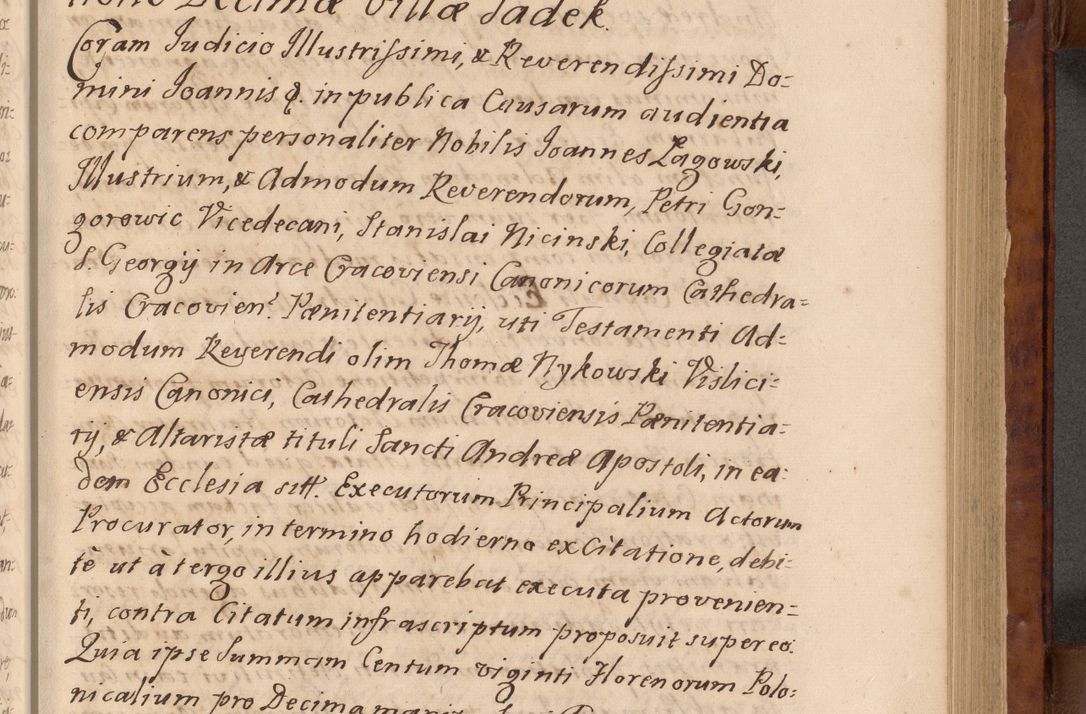 Decimæ Villæ Sadek.
Coram Iudicio Illustrissimi, & Reverendissimi Do=
mini Ioannis &. in publica Causarum audientia
comparens personaliter Nobilis Ioannes Łagowski,
Illustrium, & Admodum Reverendorum, Petri Gon=
gorowic Vicedecani, Stanislai Nicinski, Collegiatæ
S. Georgij in Arce Cracoviensi Canonicorum Cathedra=
lis Cracovien: Pænitentiarij, uti Testamenti Ad=
modum Reverendi olim Thomæ Nykowski Vislici=
ensis Canonici, Cathedralis Cracoviensis Pænitentia=
rij, & Altaristæ tituli Sancti Andreæ Apostoli, in ea=
dem Ecclesia sitt. Executorum Principalium Actorum
Procurator, in termino hodierno ex Citatione, debi=
tè ut à tergo illius apparebat executa provenien=
ti, contra Citatum infrascriptum proposuit super eo.
Quia ipse Summam Centum viginti Florenorum Polo=
nicalium pro Decima